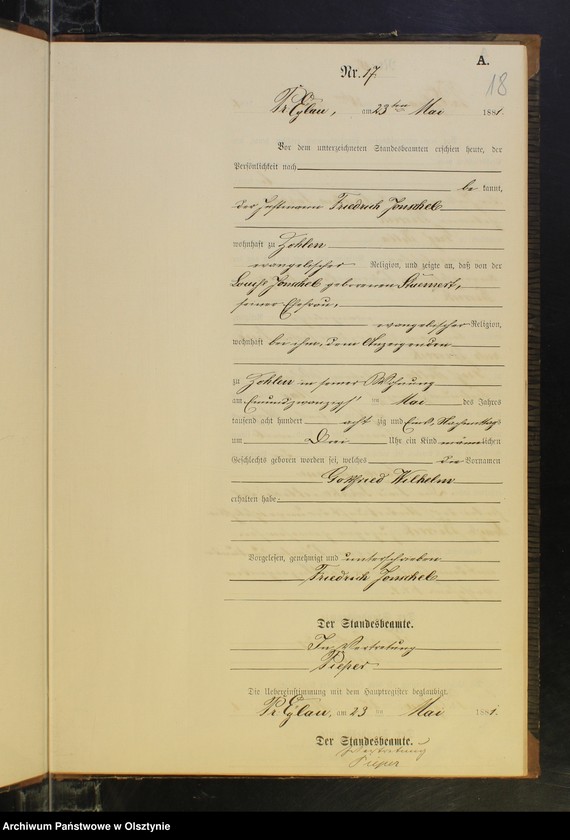 A.
18
Nr. 17.
Pr. Eylau, am 23 ten Mai 1881.
Vor dem unterzeichneten Standesbeamten erschien heute, der
Persönlichkeit nach
be kannt,
der Friedrich Jonschel
wohnhaft zu Zohlen
evangelischer Religion, und zeigte an, daß von der
Jonschel geborenen
seiner Ehefrau,
evangelischer Religion,
wohnhaft bei ihm, dem Anzeigenden
zu Zohlen in seiner Wohnung
am Einundzwanzigst en Mai des Jahres
tausend acht hundert acht zig und Eins, Nachmittags
um Drei Uhr ein Kind männlichen
Geschlechts geboren worden sei, welches die Vornamen
Gottfried Wilhelm
erhalten habe.
Vorgelesen, genehmigt und unterschrieben
Friedrich Jonschel
Der Standesbeamte.
In Vertretung
Pieper
Die Uebereinstimmung mit dem Hauptregister beglaubigt.
Pr. Eylau, am 23 ten Mai 1881.
Der Standesbeamte.
Vertretung
Pieper
Archiwum Państwowe w Olsztynie